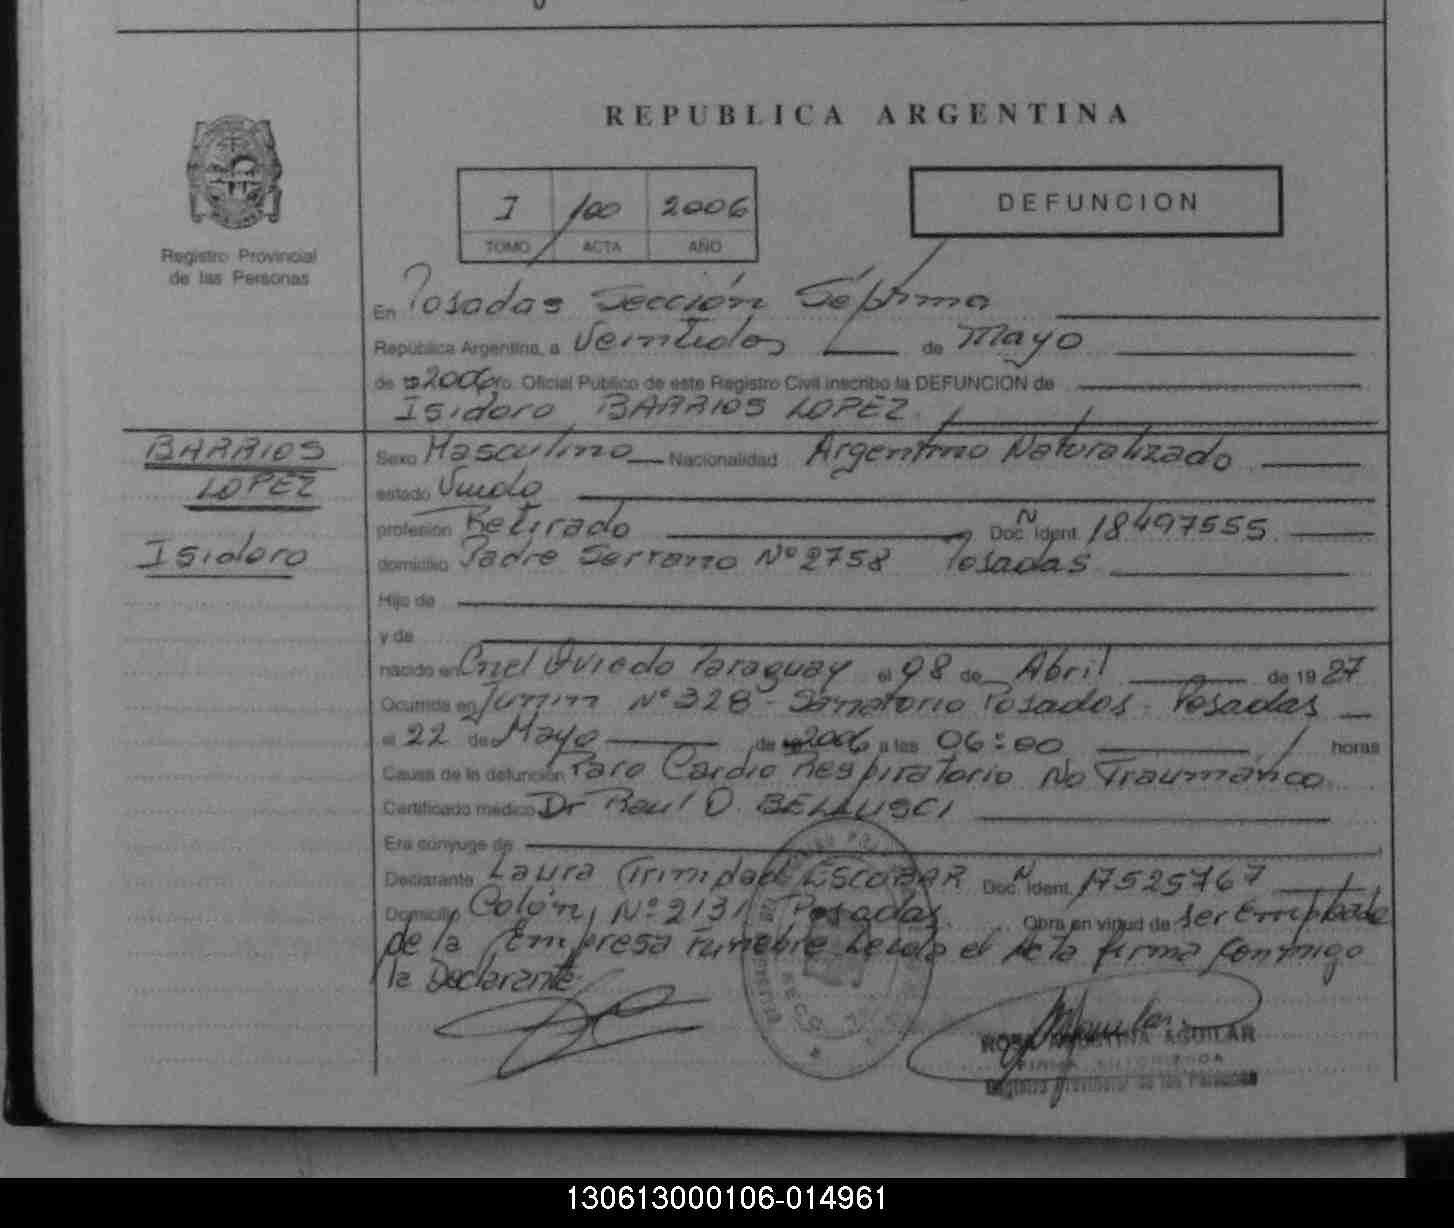 REPUBLICA ARGENTINA
I 100 2006
TOMO ACTA AÑO
DEFUNCION
Registro Provincial
de las Personas
En Posadas Sección Séptima
República Argentina, a Veintidos de Mayo
de 2006 yo. Oficial Público de este Registro Civil inscribo la DEFUNCION de
Isidoro BARRIOS LOPEZ
BARRIOS
LOPEZ
Isidoro
Sexo Masculino Nacionalidad Argentino Naturalizado
estado Viudo
profesión Retirado Doc. N Ident. 18497555
domicilio Padre Serrano Nº 2758 Posadas
Hijo de
y de
nacido en Cnel Oviedo Paraguay el 08 de Abril de 1927
Ocurrida en Junin Nº 328 - Sanatorio Posadas - Posadas
el 22 de Mayo de 2006 a las 06:00 horas
Causa de la defunción Paro Cardio Respiratorio No Traumático
Certificado médico Dr Raul O. BELLUSCI
Era cónyuge de
Declarante Laura Trinidad ESCOBAR Doc. N Ident. 17525767
Domicilio Colón Nº 2131 Posadas. Obra en virtud de ser Empleada
de la Empresa Funebre Leida el Acta firma conmigo
la Declarante
AGUILAR
Registro Provincial de las Personas
130613000106-014961